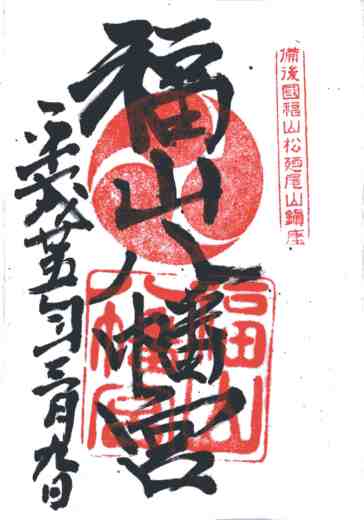 備後國福山松廼尾山鎮座
福山八幡宮
福山
八幡宮
平成廿五年三月九日